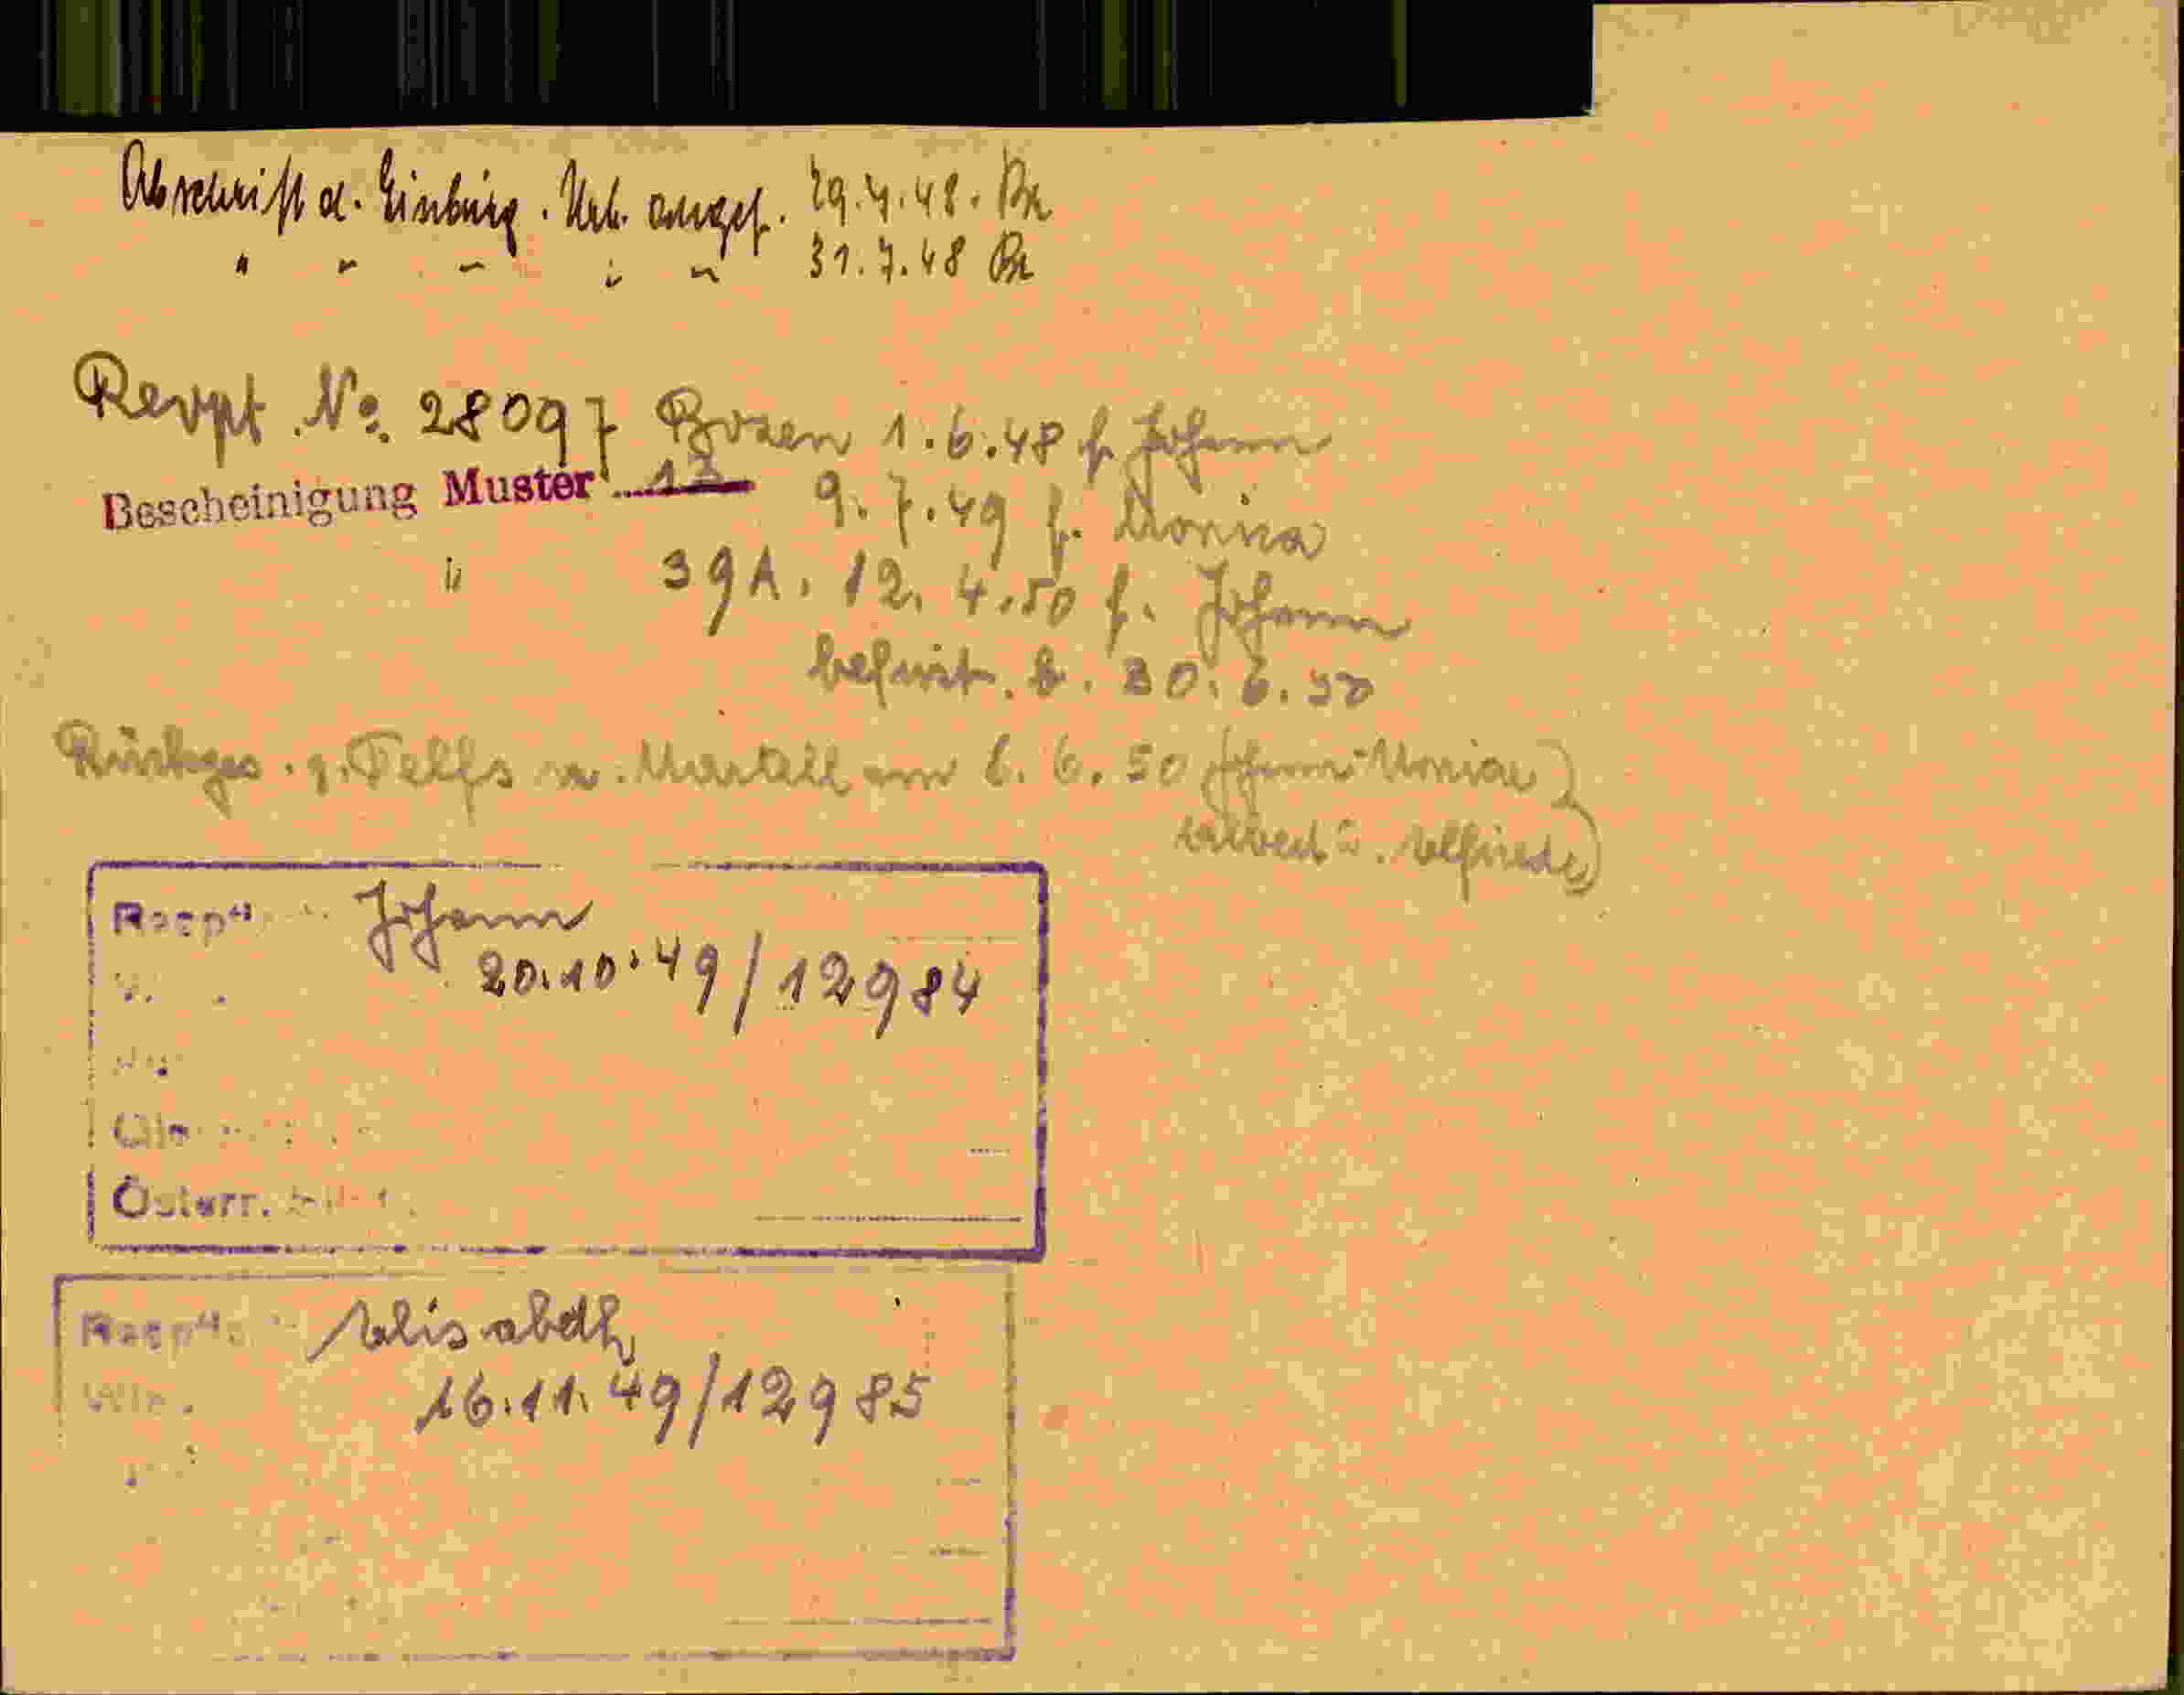 Abschrift d. Einbürg. Urk. angef. 29.4.48. Br
" " " " " 31.7.48 Br
Revpt. No. 28097 Bozen 1.6.48 f. Johann
Bescheinigung Muster 13 9.7.49 f. Monica
" 39A. 12.4.50 f. Johann
befrist. b. 30.6.50
Rückges. g. Telfs n. Martell am 6.6.50 Johann Monica
u. Elfriede)
Johann
20.10.49/12984
Österr.
Elisabeth
16.11.49/12985